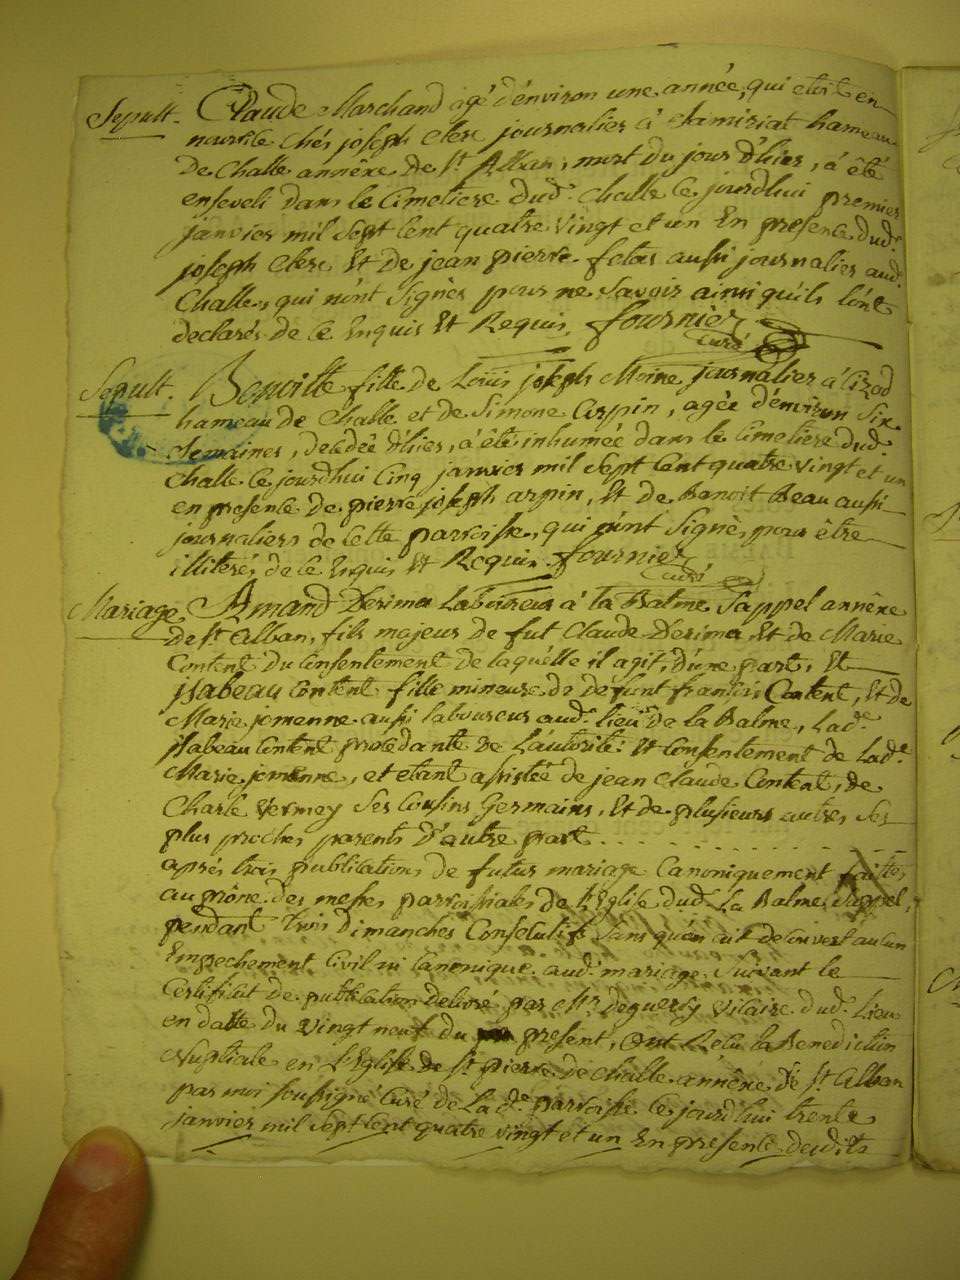 Sepult. Claude Marchand agé d'environ une année, qui etoit en
nourrice chés joseph Clerc journalier à Samiriat hameau
de Challe annêxe de St. Alban, mort du jour d'hier, à été
enseveli dans le Cimetiere dud. Challe ce jourdhui premier
janvier mil Sept cent quatre vingt et un En presence dud.
joseph Clerc Et de jean pierre aussi journalier aud.
Challe, qui n'ont Signés pour ne Savoir ainsi qu'ils l'ont
declarés de ce Enquis Et Requis. fournier
Curé
Sepult. Benoitte fille de Louis joseph Moine journalier à Cizod
hameau de Challe et de Simone Arpin, agée d'environ Six
Semaines, decedée d'hier, à été inhumée dans le Cimetiere dud.
Challe ce jourdhui Cinq janvier mil Sept Cent quatre vingt et un
en presence de pierre joseph arpin, Et de Benoit Beau aussi
journaliers de cette parroisse, qui n'ont Signé, pour être
illiterés de ce Enquis Et Requis. fournier
Curé
Mariage. Amand Laboureur à la Balme Sappel annêxe
de St. Alban, fils majeur de fut Claude Et de Marie
Content du Consentement de laquelle il agit, d'une part, Et
jsabeau Content fille mineure de défunt françois Content, Et de
Marie jemenne aussi laboureurs aud. lieu de la Balme, Lade.
jsabeau Content procedante de L'autorité Et Consentement de Lade.
Marie jemenne, et etant assistée de jean Claude Content, de
Charle Vermey Ses Cousins Germains, Et de plusieurs autres Ses
plus proches parents d'autre part
aprés trois publications de futur mariage Canoniquement faittes
au prône des messes parroissiales de l'Eglise dud. La Balme Sappel,
pendant trois Dimanches Consecutifs Sans qu'on ait decouvert aucun
Empechement Civil ni Canonique aud. mariage, Suivant le
Certificat de publication delivré par Mr. deguerly Vicaire dud. Lieu
en datte du vingt neuf du present, Ont Recu la Benediction
Nuptiale en L'Eglise de St. pierre de Challe annêxe de St. Alban
par moi Soussigné Curé de Lade. parroisse ce jourd'hui trente
janvier mil Sept Cent quatre vingt et un En presence desdits